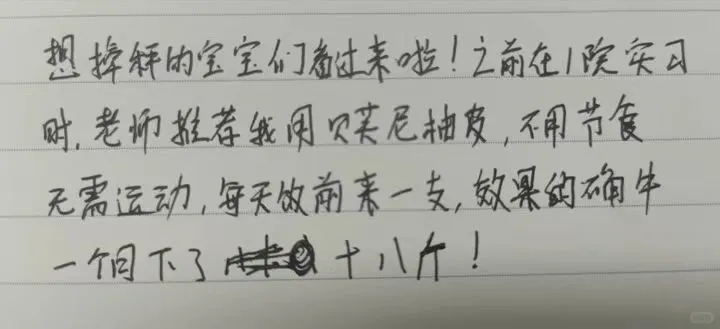 想掉秤的宝宝们看过来啦！之前在1院实习
时，老师推荐我用贝芙尼柚皮，不用节食
无需运动，每天饭前来一支，效果的确牛
一个月下了 十八斤！